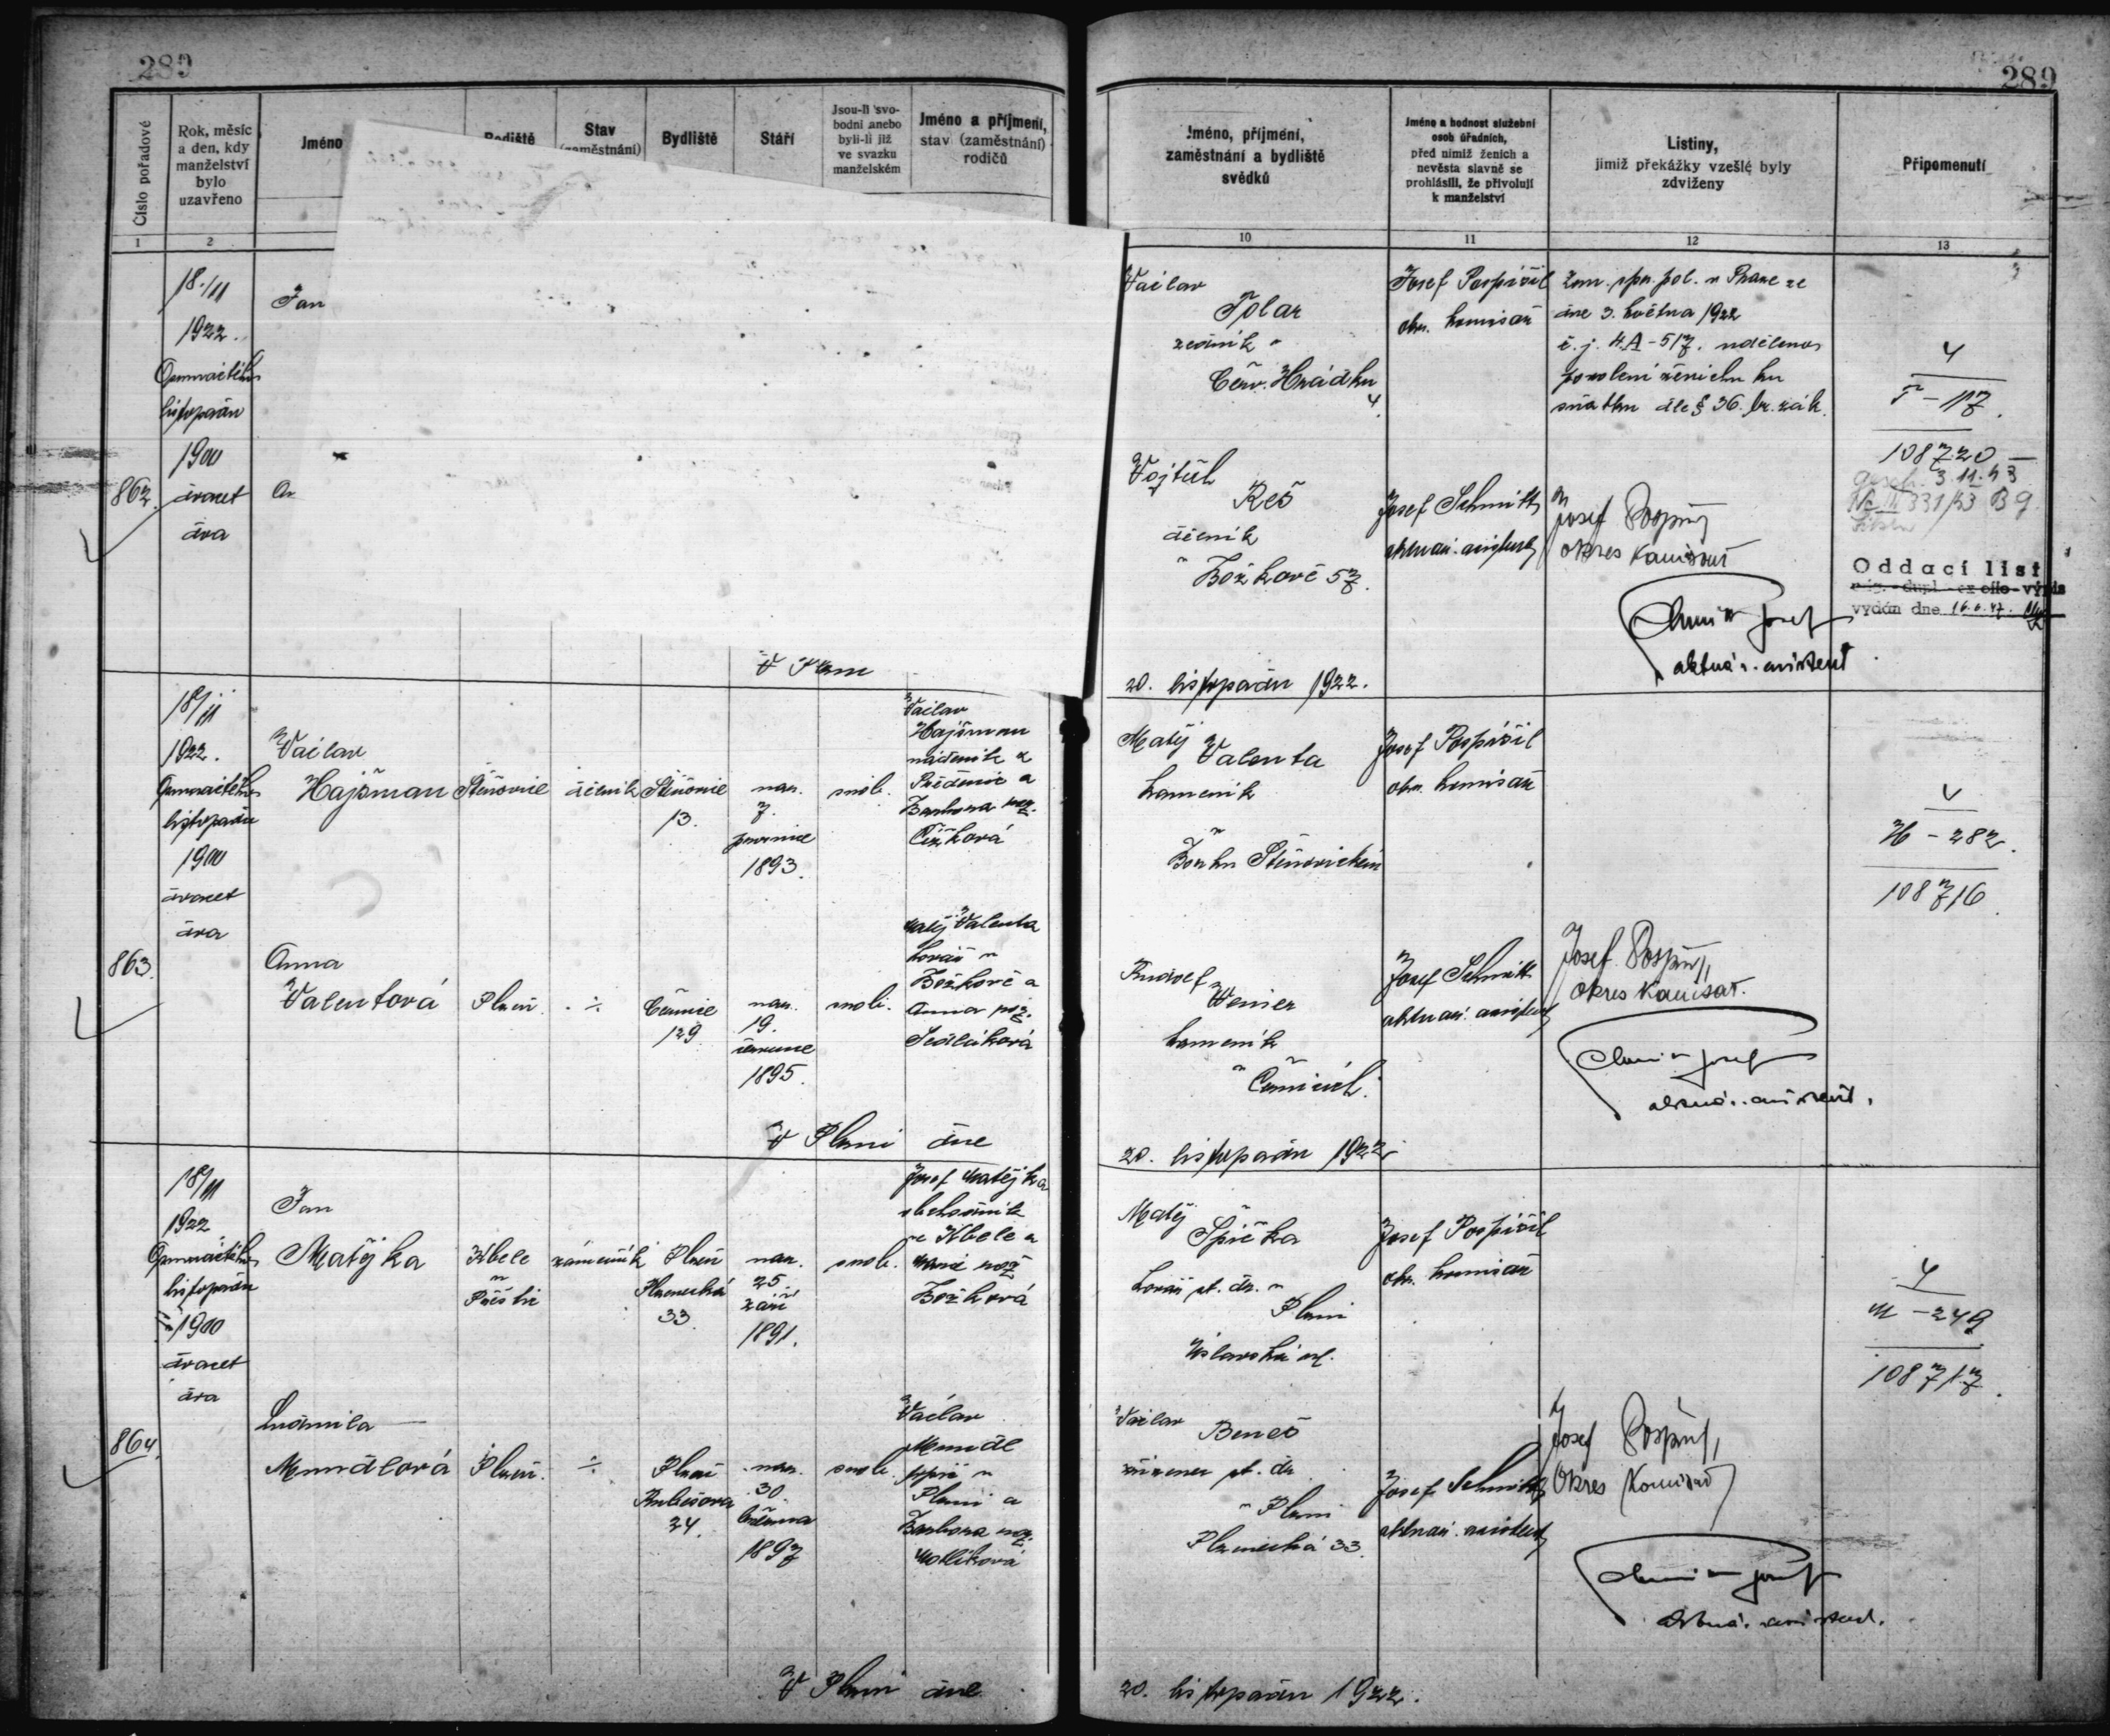 289
289
Číslo pořadové
Rok, měsíc
a den, kdy
manželství
bylo
uzavřeno
Jméno
Rodiště
Stav
(zaměstnání)
Bydliště
Stáří
Jsou-li svo-
bodni anebo
byli-li již
ve svazku
manželském
Jméno a příjmení,
stav (zaměstnání)
rodičů
Jméno, příjmení,
zaměstnání a bydliště
svědků
Jméno a hodnost služební
osob úřadních,
před nimiž ženich a
nevěsta slavně se
prohlásili, že přivolují
k manželství
Listiny,
jimiž překážky vzešlé byly
zdviženy
Připomenutí
1
2
10
11
12
13
862.
18./11
1922.
Osmnáctého
listopadu
1900
dvacet
dva
Jan
Václav
Tolar
zedník v
Červ. Hrádku
4.
Josef Pospíšil
okr. komisař
Zem. spr. pol. v Praze ze
dne 3. května 1922
č. j. 4.A-517. uděleno
povolení ženichu ku
sňatku dle § 36. br. zák.
4
T - 117.
108720 -
3.11.43
Oddací list
vydán dne 16.6.47.
Vojtěch
Reš
dělník
v Božkově 57.
Josef Schmitt
aktuár. asistent
Josef Pospíšil
okres komisař
Schmitt Josef
aktuár. asistent
V Plzni
20. listopadu 1922.
863.
18/11
1922.
Osmnáctého
listopadu
1900
dvacet
dva
Václav
Hajšman
Štěnovice
dělník
Štěnovice
13.
nar.
7.
prosince
1893.
svob.
Václav
Hajšman
nádeník z
Předenic a
Barbora roz.
Čížková
Matěj
Valenta
kameník
v
Borku Štěnovickém
Josef Pospíšil
okr. komisař
V
H - 282.
108716.
Anna
Valentová
Plzeň
÷
Černice
129
nar.
19.
července
1895.
svob.
Matěj Valenta
kovář v
Božkově a
Anna roz.
Sedláková
Rudolf
Weiner
kameník
v Černicích.
Josef Schmitt
aktuár. asistent
Josef Pospíšil,
okres komisař.
Schmitt Josef
aktuár. asistent.
V Plzni dne
20. listopadu 1922.
864.
18/11
1922
Osmnáctého
listopadu
1900
dvacet
dva
Jan
Matějka
Kbele
u
Přeštic
zámečník
Plzeň
Plzenecká
33
nar.
25.
září
1891.
svob.
Josef Matějka
obchodník
ve Kbele a
Marie roz.
Božková
Matěj
Špička
kovář st. dr. v
Plzni
Úslavská ul.
Josef Pospíšil
okr. komisař
4
M - 249
108717.
Ludmila
Mundlová
Plzeň.
÷
Plzeň
Rubešova
24.
nar.
30.
března
1897
svob.
Václav
Mundl
topič v
Plzni a
Barbora roz.
Motlíková
Václav
Beneš
st. dr.
v Plzni
Plzenecká 33.
Josef Schmitt
aktuár. asistent
Josef Pospíšil,
okres komisař
Schmitt Josef
aktuár. asistent.
V Plzni dne
20. listopadu 1922.